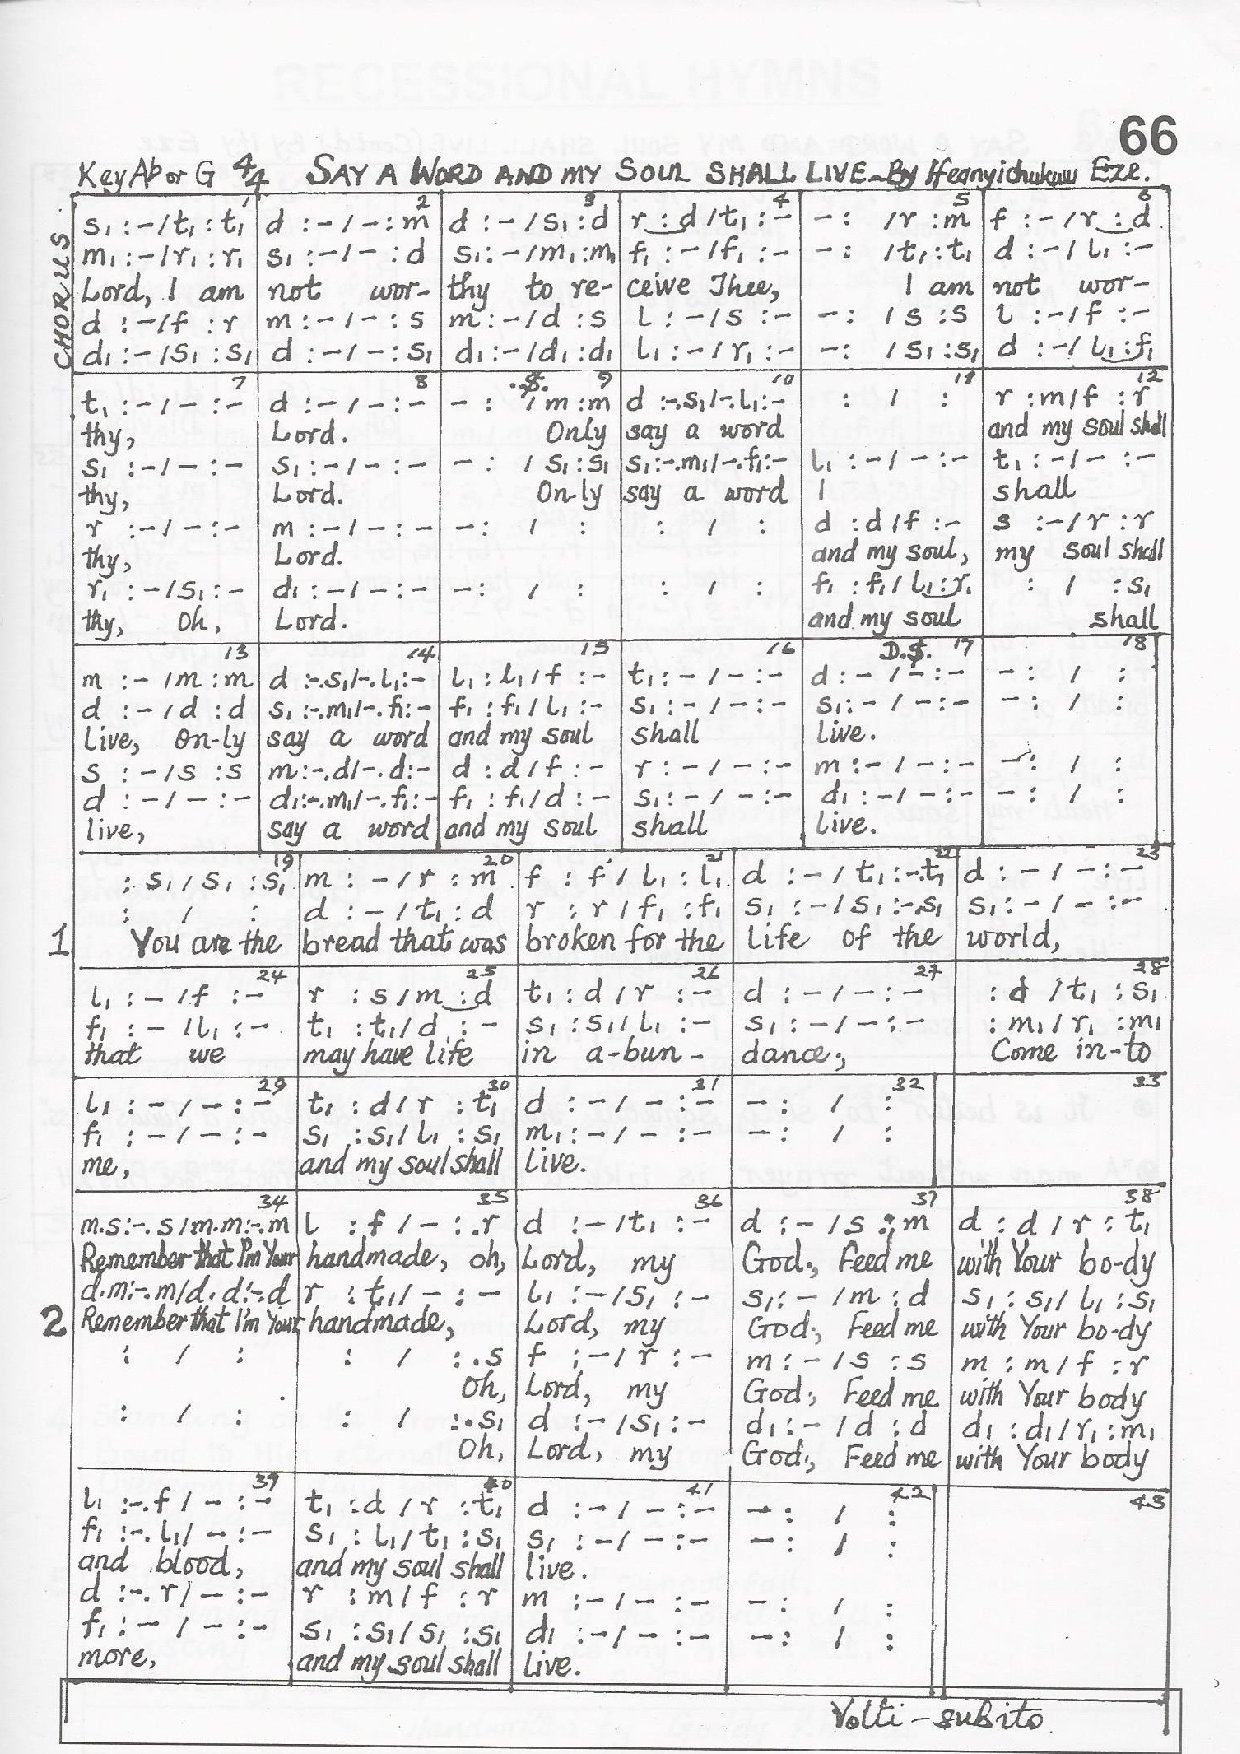 66
Key Ab or G 4/4 SAY A WORD AND MY SOUL SHALL LIVE - By Ifeanyichukwu Eze.
CHORUS
1 2 3 4 5 6
s₁ :-/t₁ :t₁ d :-/-:m d :-/s₁ :d r :d/t₁ :- -: /r :m f :-/r :d
m₁ :-/r₁ :r₁ s₁ :-/-:d s₁ :-/m₁ :m₁ f₁ :-/f₁ :- -: /t₁ :t₁ d :-/l₁ :-
Lord, I am not wor- thy to re- ceive Thee, I am not wor-
d :-/f :r m :-/-:s m :-/d :s l :-/s :- -: /s :s l :-/f :-
d₁ :-/s₁ :s₁ d :-/-:s₁ d₁ :-/d₁ :d₁ l₁ :-/r₁ :- -: /s₁ :s₁ d :-/l₁ :f₁
7 8 .$. 9 10 11 12
t₁ :-/-:- d :-/-:- -: /m :m d :-.s₁/-.l₁:- : / : r :m/f :r
thy, Lord. Only say a word and my soul shall
s₁ :-/-:- s₁ :-/-:- -: /s₁ :s₁ s₁:-.m₁/-.f₁:- l₁ :-/-:- t₁ :-/-:-
thy, Lord. On-ly say a word I shall
r :-/-:- m :-/-:- -: / : : / : d :d/f :- s :-/r :r
thy, Lord. and my soul, my soul shall
r₁ :-/s₁ :- d₁ :-/-:- -: / : : / : f₁ :f₁/l₁ :r₁ : / :s₁
thy, Oh, Lord. and my soul shall
13 14 15 16 D.$. 17 18
m :-/m :m d :-.s₁/-.l₁:- l₁ :l₁/f :- t₁ :-/-:- d :-/-:- -: / :
d :-/d :d s₁ :-.m₁/-.f₁:- f₁ :f₁/l₁ :- s₁ :-/-:- s₁ :-/-:- -: / :
live, on-ly say a word and my soul shall live.
s :-/s :s m:-.d/-.d:- d :d/f :- r :-/-:- m :-/-:- -: / :
d :-/-:- d₁:-.m₁/-.f₁:- f₁ :f₁/d :- s₁ :-/-:- d₁ :-/-:- -: / :
live, say a word and my soul shall live.
19 20 21 22 23
:s₁/s₁ :s₁ m :-/r :m f :f/l₁ :l₁ d :-/t₁ :-.t₁ d :-/-:-
: / : d :-/t₁ :d r :r/f₁ :f₁ s₁ :-/s₁ :-.s₁ s₁ :-/-:-
1 You are the bread that was broken for the life of the world,
24 25 26 27 28
l₁ :-/f :- r :s/m :d t₁ :d/r :- d :-/-:- :d/t₁ :s₁
f₁ :-/l₁ :- t₁ :t₁/d :- s₁ :s₁/l₁ :- s₁ :-/-:- :m₁/r₁ :m₁
that we may have life in a-bun- dance, Come in-to
29 30 31 32 33
l₁ :-/-:- t₁ :d/r :t₁ d :-/-:- -: / :
f₁ :-/-:- s₁ :s₁/l₁ :s₁ m₁ :-/-:- -: / :
me, and my soul shall live.
34 35 36 37 38
m.s:-.s/m.m:-.m l :f/-:.r d :-/t₁ :- d :-/s :m d :d/r :t₁
Remember that I'm Your handmade, oh, Lord, my God, Feed me with Your bo-dy
d.m:-.m/d.d:-.d r :t₁/-:- l₁ :-/s₁ :- s₁ :-/m :d s₁ :s₁/l₁ :s₁
2 Remember that I'm Your handmade, Lord, my God, Feed me with Your bo-dy
: / : : / :.s f :-/r :- m :-/s :s m :m/f :r
Oh, Lord, my God, Feed me with Your body
: / : : / :.s₁ d :-/s₁ :- d₁ :-/d :d d₁ :d₁/r₁ :m₁
Oh, Lord, my God, Feed me with Your body
39 40 41 42 43
l₁ :-.f/-:- t₁ :d/r :t₁ d :-/-:- -: / :
f₁ :-.l₁/-:- s₁ :l₁/t₁ :s₁ s₁ :-/-:- -: / :
and blood, and my soul shall live.
d :-.r/-:- r :m/f :r m :-/-:- -: / :
f₁ :-/-:- s₁ :s₁/s₁ :s₁ d₁ :-/-:- -: / :
more, and my soul shall live.
Volti-subito